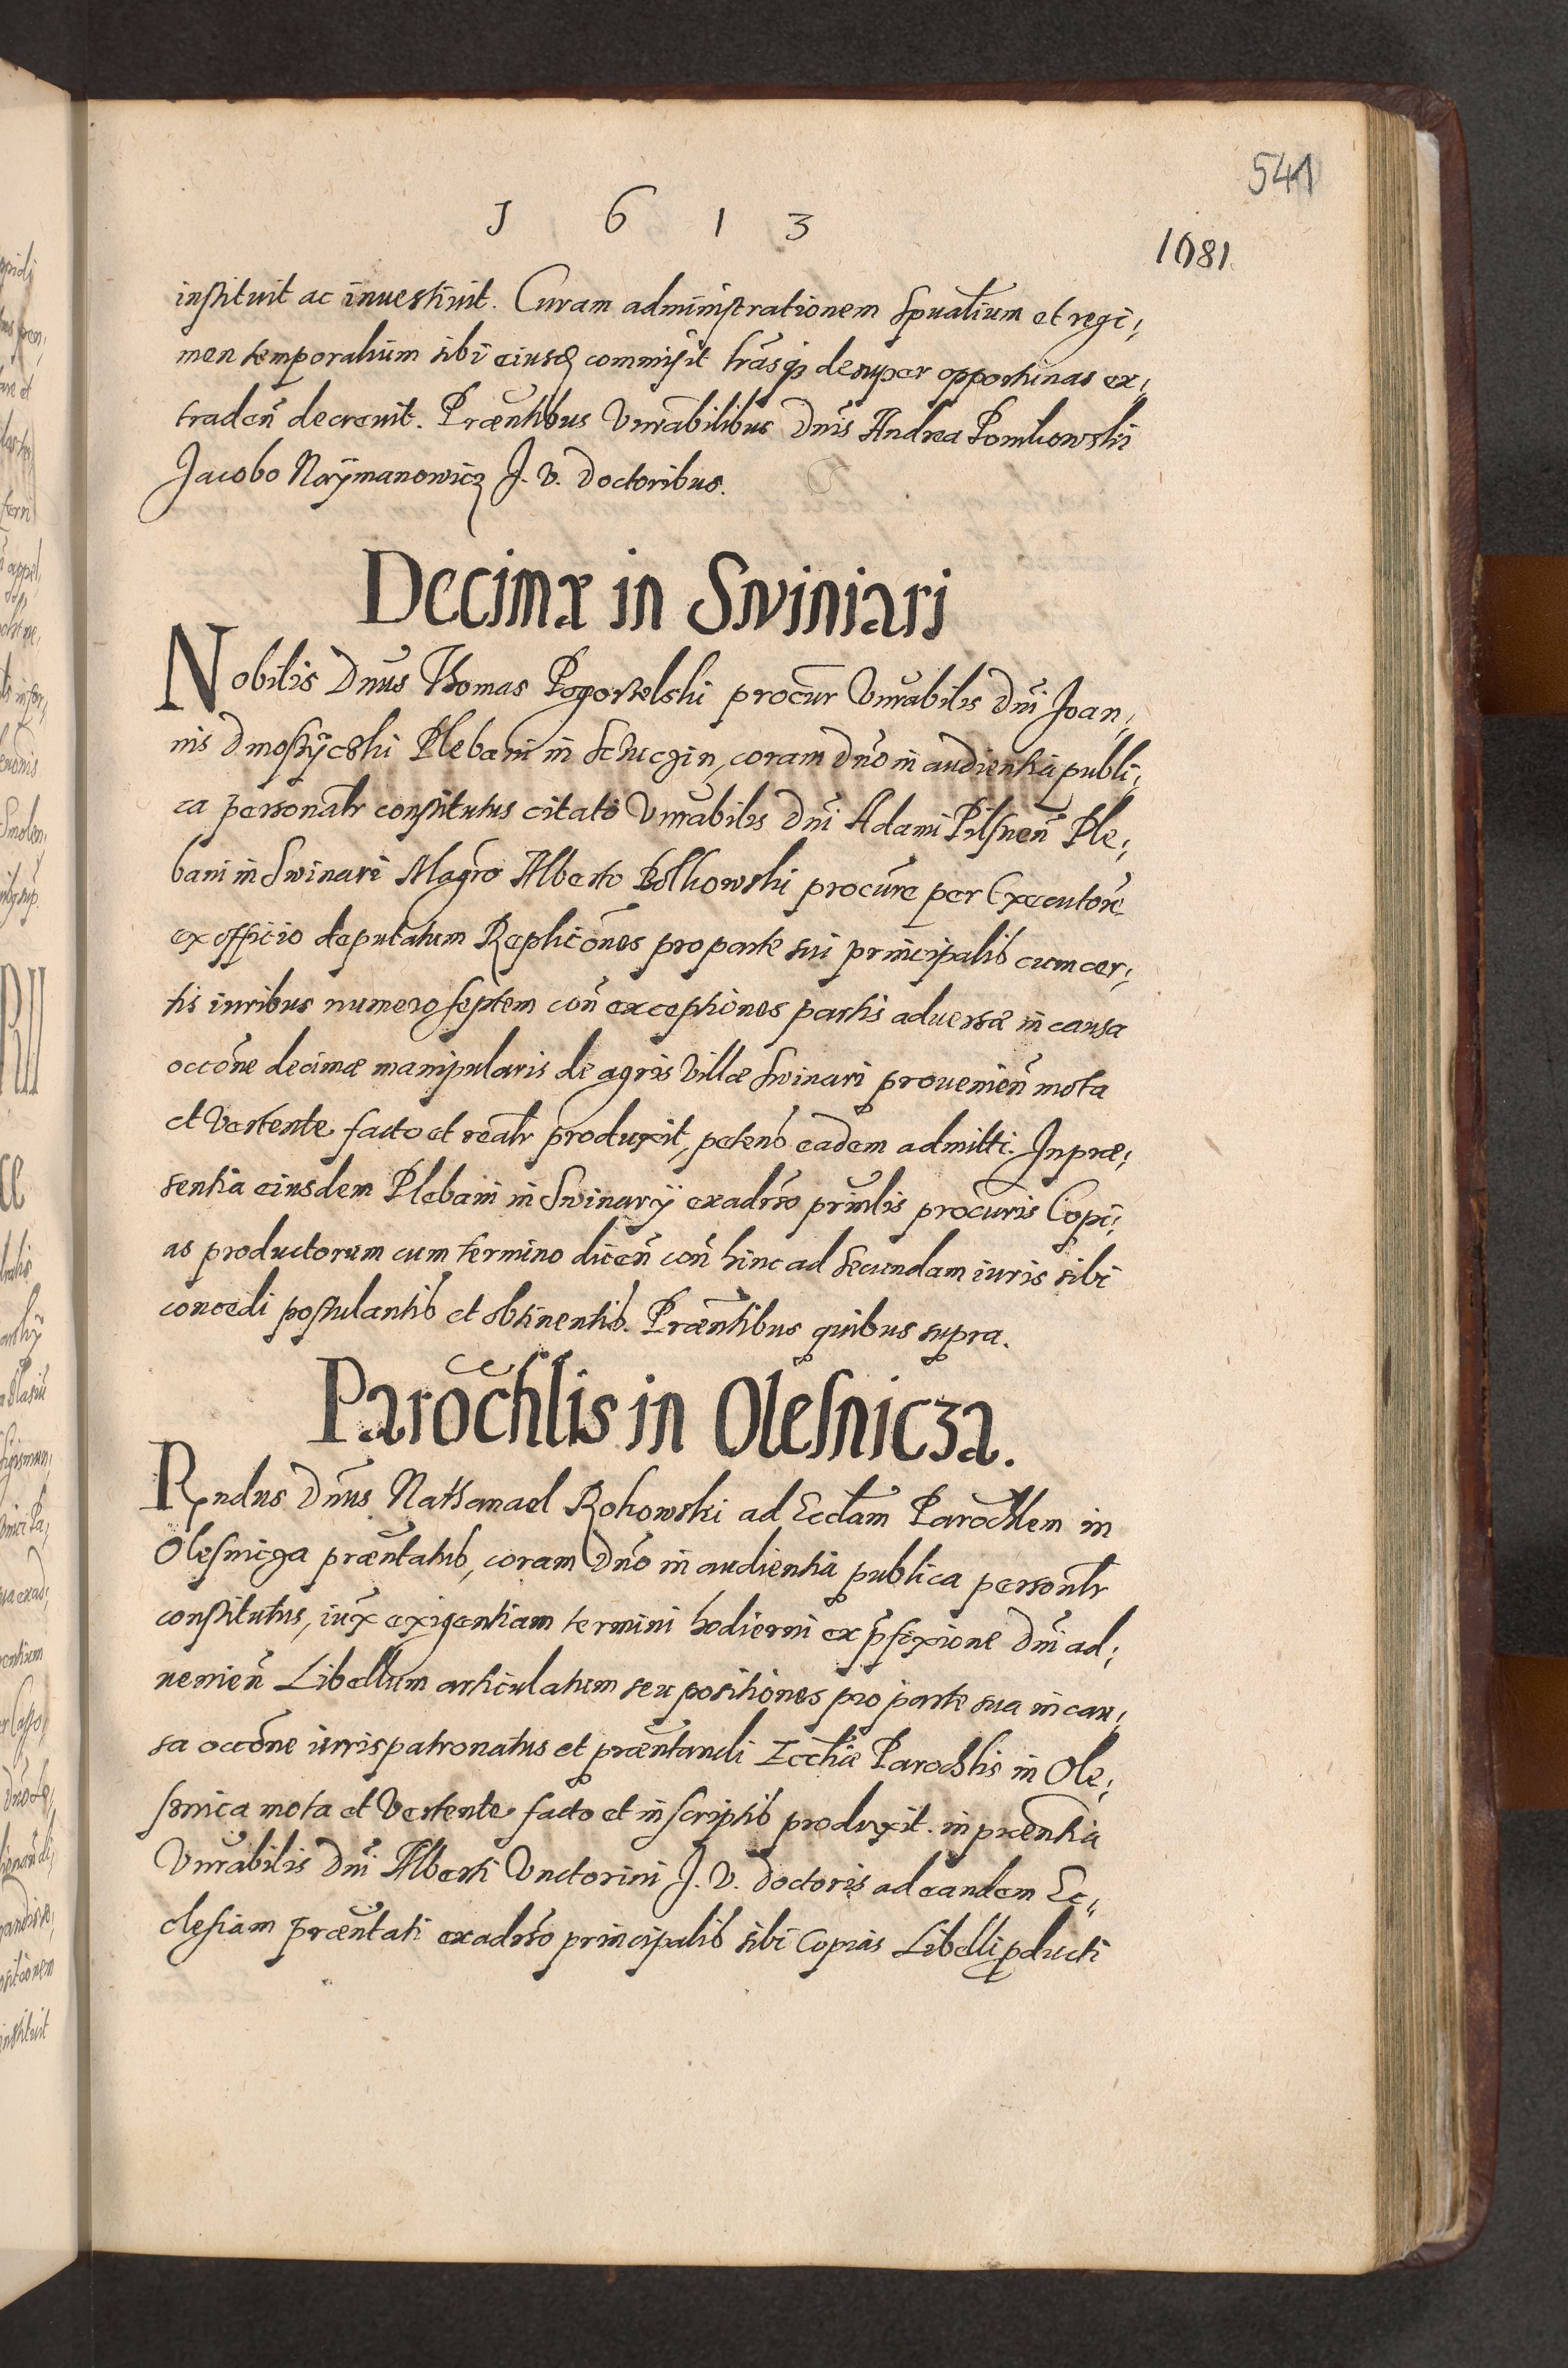 541
J 6 1 3
1081
instituit ac inuestiuit. Curam administrationem Spualium et regi;
men temporalium sibi eiusd commisit lrãsq desuper opportunas ex;
tradeñ decreuit. Præntibus Vnrabilibus Dnis Andrea
Jacobo Naÿmanowicz J. V. Doctoribus.
Decimæ in Swiniari
Nobilis Dnus Thomas Pogorzelski procur Vnrabilis dni Joan;
nis Plebani in coram dno in audientia publi;
ca personalr constitutus citato Vnrabilis Dni Adami Pilsneñ Ple;
bani in Swinari Magro Alberto procure per Executore
ex officio deputatum Replicones pro parte sui principalis cum cer;
tis iuribus numero septem coñ exceptiones partis aduersæ in causa
occone decimæ manipularis de agris Villæ Swinari prouenieñ mota
et Vertente facto et realr produxit, petens eadem admitti. In præ;
sentia eiusdem Plebani in Swinarÿ ex adrso prinlis procuris Copi;
as productorum cum termino diceñ coñ hinc ad secundam iuris sibi
concedi postulantis et obtinentis. Præntibus quibus supra.
Parochlis in Olesnicza.
Rndus Dnus Nathanael Rokowski ad Ecclam Parochlem in
Olesnicza præntatus, coram Dno in audientia publica personlr
constitutus, iux exigentiam termini hodierni ex pfixione dni ad;
uenieñ Libellum articulatum seu positiones pro parte sua in cau;
sa occone iuris patronatus et præntandi Ecclæ Parochlis in Ole;
snica mota et Vertente facto et in scriptis produxit. in præntia
Vnrabilis Dni Alberti Vnctorini J. V. Doctoris ad eandem Ec;
clesiam præntati ex adrso principalis sibi Copias Libelli pducti